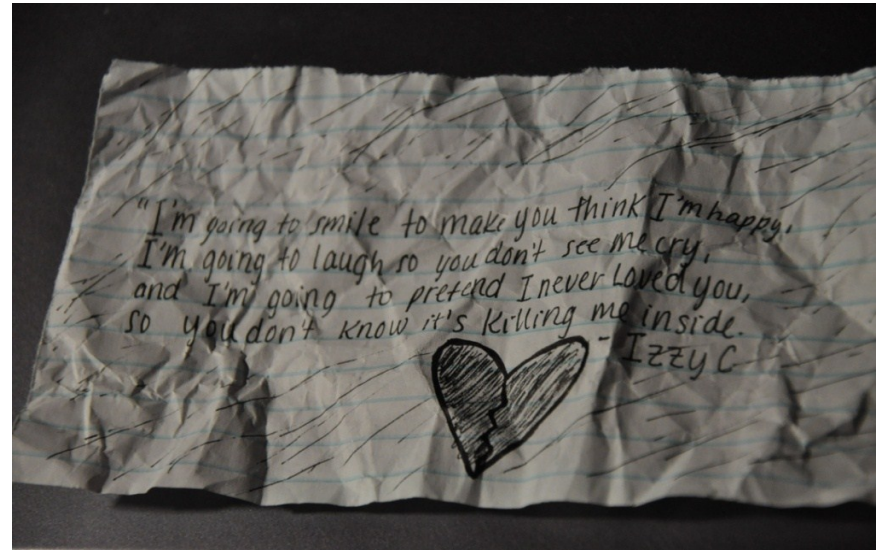 "I'm going to smile to make you think I'm happy,
I'm going to laugh so you don't see me cry,
and I'm going to pretend I never loved you,
so you don't know it's killing me inside.
- Izzy C